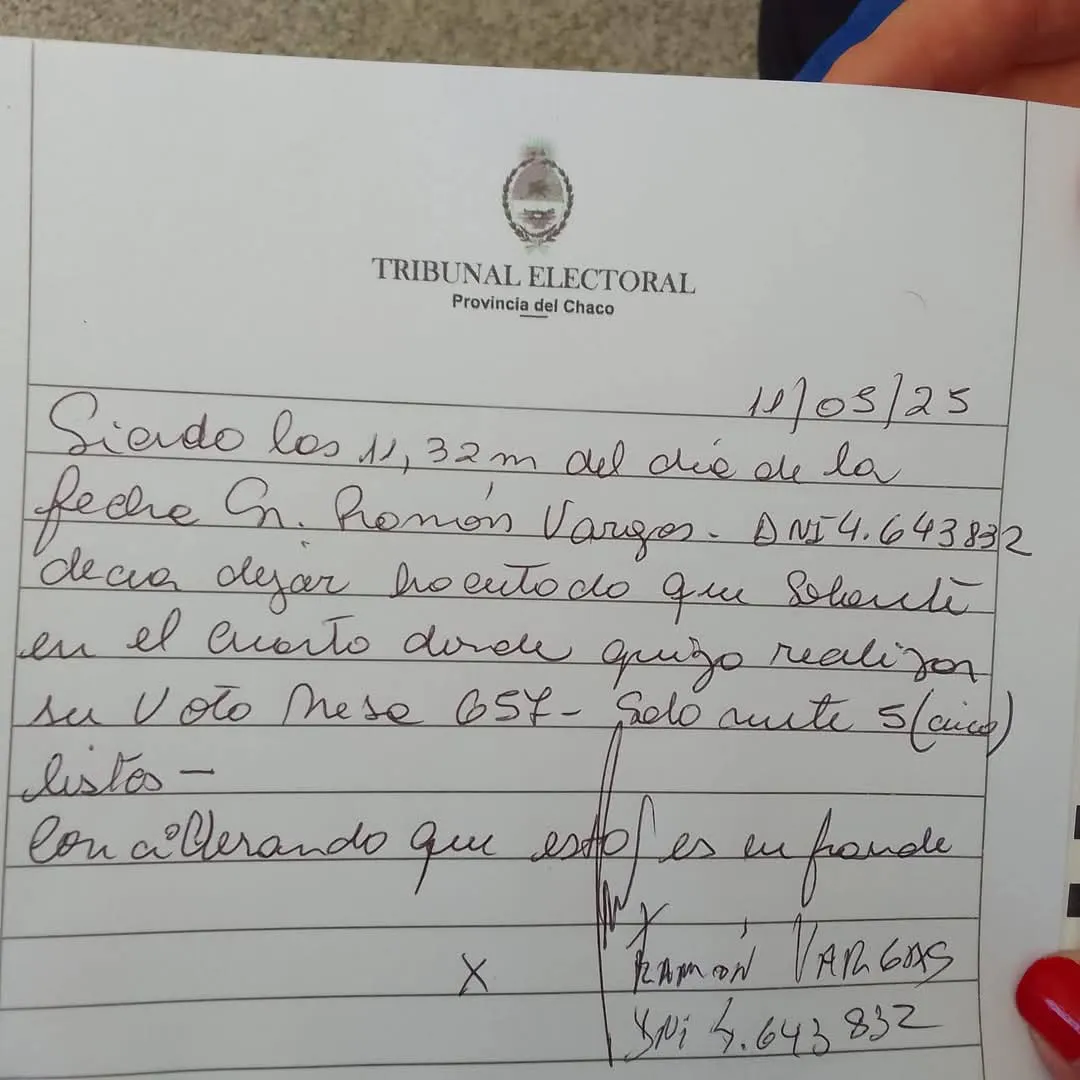 TRIBUNAL ELECTORAL
Provincia del Chaco
11/05/25
Siendo las 11,32 m del día de la
fecha Sr. Ramón Vargas - DNI 4.643832
desea dejar que
en el cuarto donde quizo realizar
su voto Mesa 657 - Solo 5 (cinco)
listas -
Considerando que esto es un fraude
X
RAMÓN VARGAS
X
DNi 4.643 832